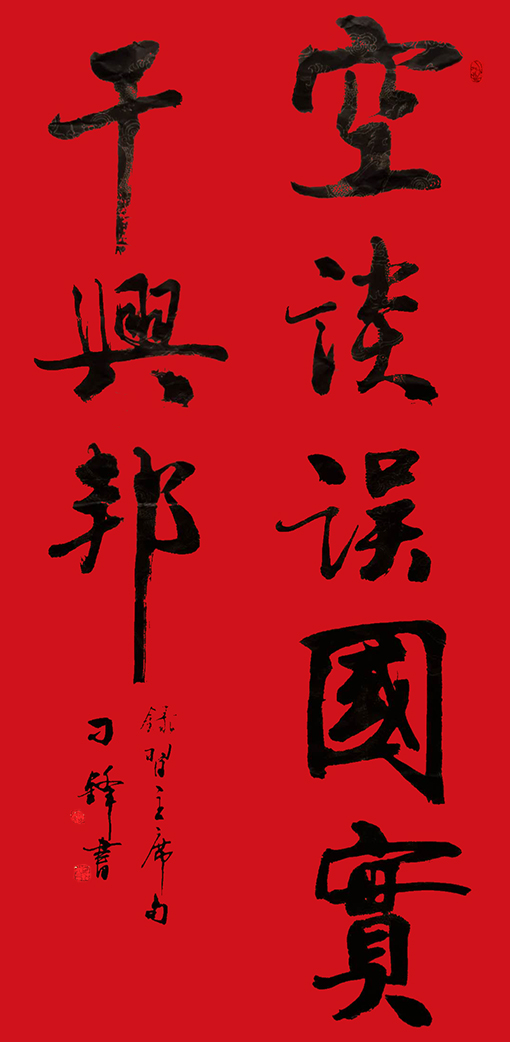 空談误國實
干興邦
錄習主席句
刁鋒書